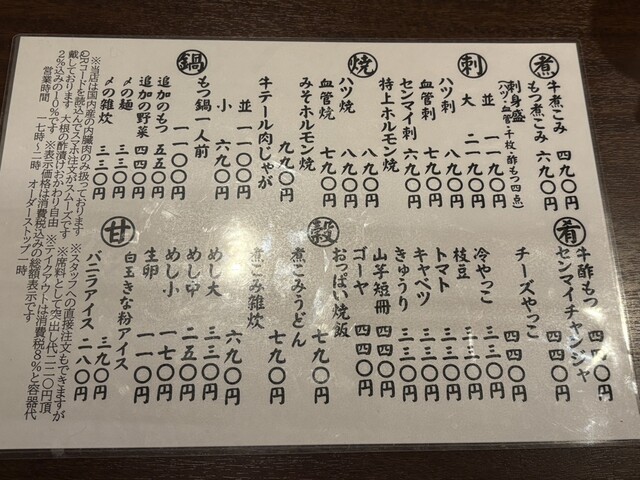 煮
牛煮こみ 四九〇円
もつ煮こみ 六九〇円
刺
刺身盛
(ハツ・血管・千枚・酢もつ四点)
並 一一九〇円
ハツ刺 八九〇円
血管刺 七九〇円
センマイ刺 六九〇円
焼
特上ホルモン焼
ハツ焼 八九〇円
血管焼 七九〇円
みそホルモン焼
九九〇円
牛テール肉じゃが
鍋
もつ鍋一人前
並 一一〇〇円
小 六九〇円
追加のもつ 五五〇円
追加の野菜 四四〇円
〆の麺 三三〇円
〆の雑炊 三三〇円
肴
牛酢もつ 四四〇円
センマイチャンジャ
チーズやっこ
冷やっこ 三三〇円
枝豆 三三〇円
トマト 三三〇円
キャベツ 三三〇円
きゅうり 三三〇円
山芋短冊 四四〇円
ゴーヤ 四四〇円
おっぱい焼飯
穀
七九〇円
煮こみうどん
七九〇円
煮こみ雑炊
六九〇円
めし大 三三〇円
めし中 二五〇円
めし小 一七〇円
生卵 一一〇円
甘
白玉きな粉アイス
三九〇円
バニラアイス 二八〇円
※当店は国内産の内臓肉のみ扱っております ※スタッフへの直接注文もできますが
QRコードを読込んでスマホ注文がスムーズです ※席料として突出し代二二〇円頂
戴しております 大根の酢漬けおかわり自由 ※テイクアウトは消費税8%と容器代
2%込みの10%です ※表示価格は消費税込みの総額表示です
営業時間 一七時〜二時 オーダーストップ一時